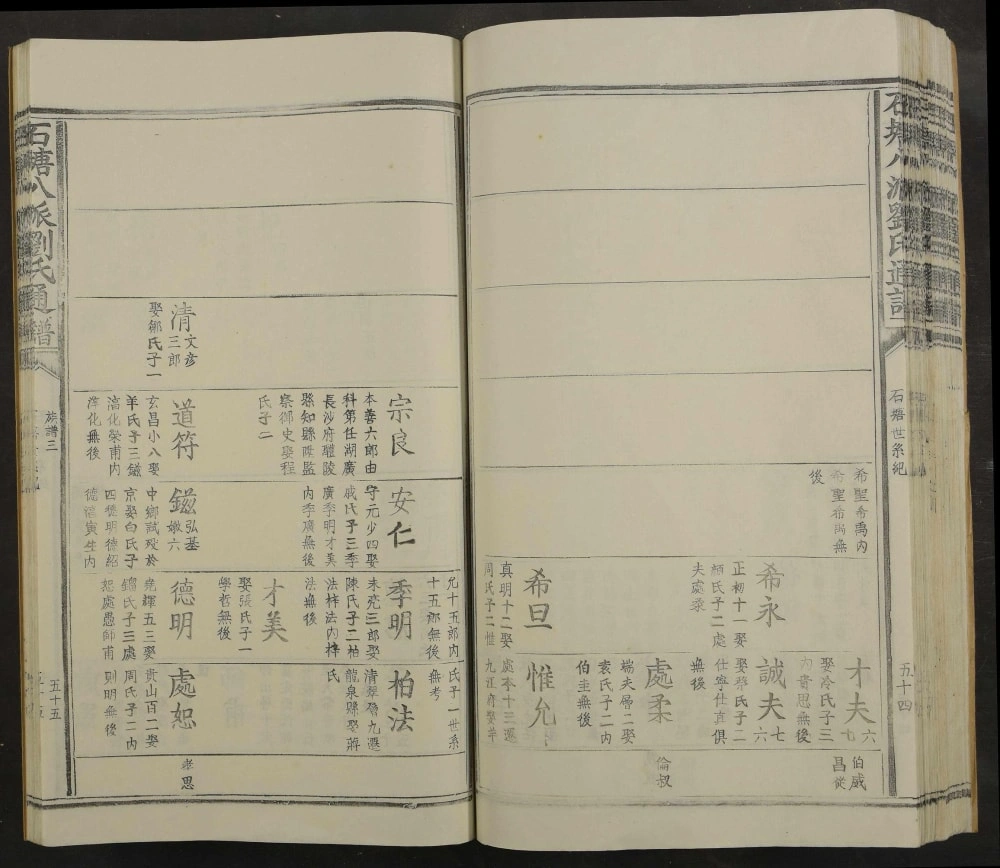 石塘八派劉氏通譜
石塘世系紀
五十四
希聖希禹內
希聖希禹無
後
希永
正初十一娶
顏氏子二處
夫處柔
希旦
真明十二娶
周氏子二惟
才夫
六七
娶冷氏子三
內貴思無後
誠夫
七六
娶蔡氏子二
仕寧仕真俱
無後
處柔
端夫儒二娶
袁氏子二內
伯圭無後
惟允
處本十三遷
九江府娶羊
伯威
昌從
倫叔
氏子一世系
無考
允十五郎內
十五郎無後
宗良
本善六郎由
科第任湖廣
長沙府醴陵
縣知縣陞監
察御史娶程
氏子二
安仁
守元少四娶
戚氏子三季
廣季明才美
內季廣無後
季明
朱亮三郎娶
陳氏子二柏
法梓法內梓
法無後
柏法
清
龍泉縣娶蔣
氏
才美
娶張氏子一
學哲無後
清
文彦
三郎
娶鄒氏子一
道符
玄昌小八娶
羊氏子三鎡
滈化榮甫內
滈化無後
鎡
弘基
嫩六
中鄉試歿於
京娶白氏子
四
德寅生內
德明
堯輝五三娶
鎦氏子三處
恕處愚師甫
處恕
貴山百二娶
周氏子二內
則明無後
孝思
石塘八派劉氏通譜
族譜三
五十五